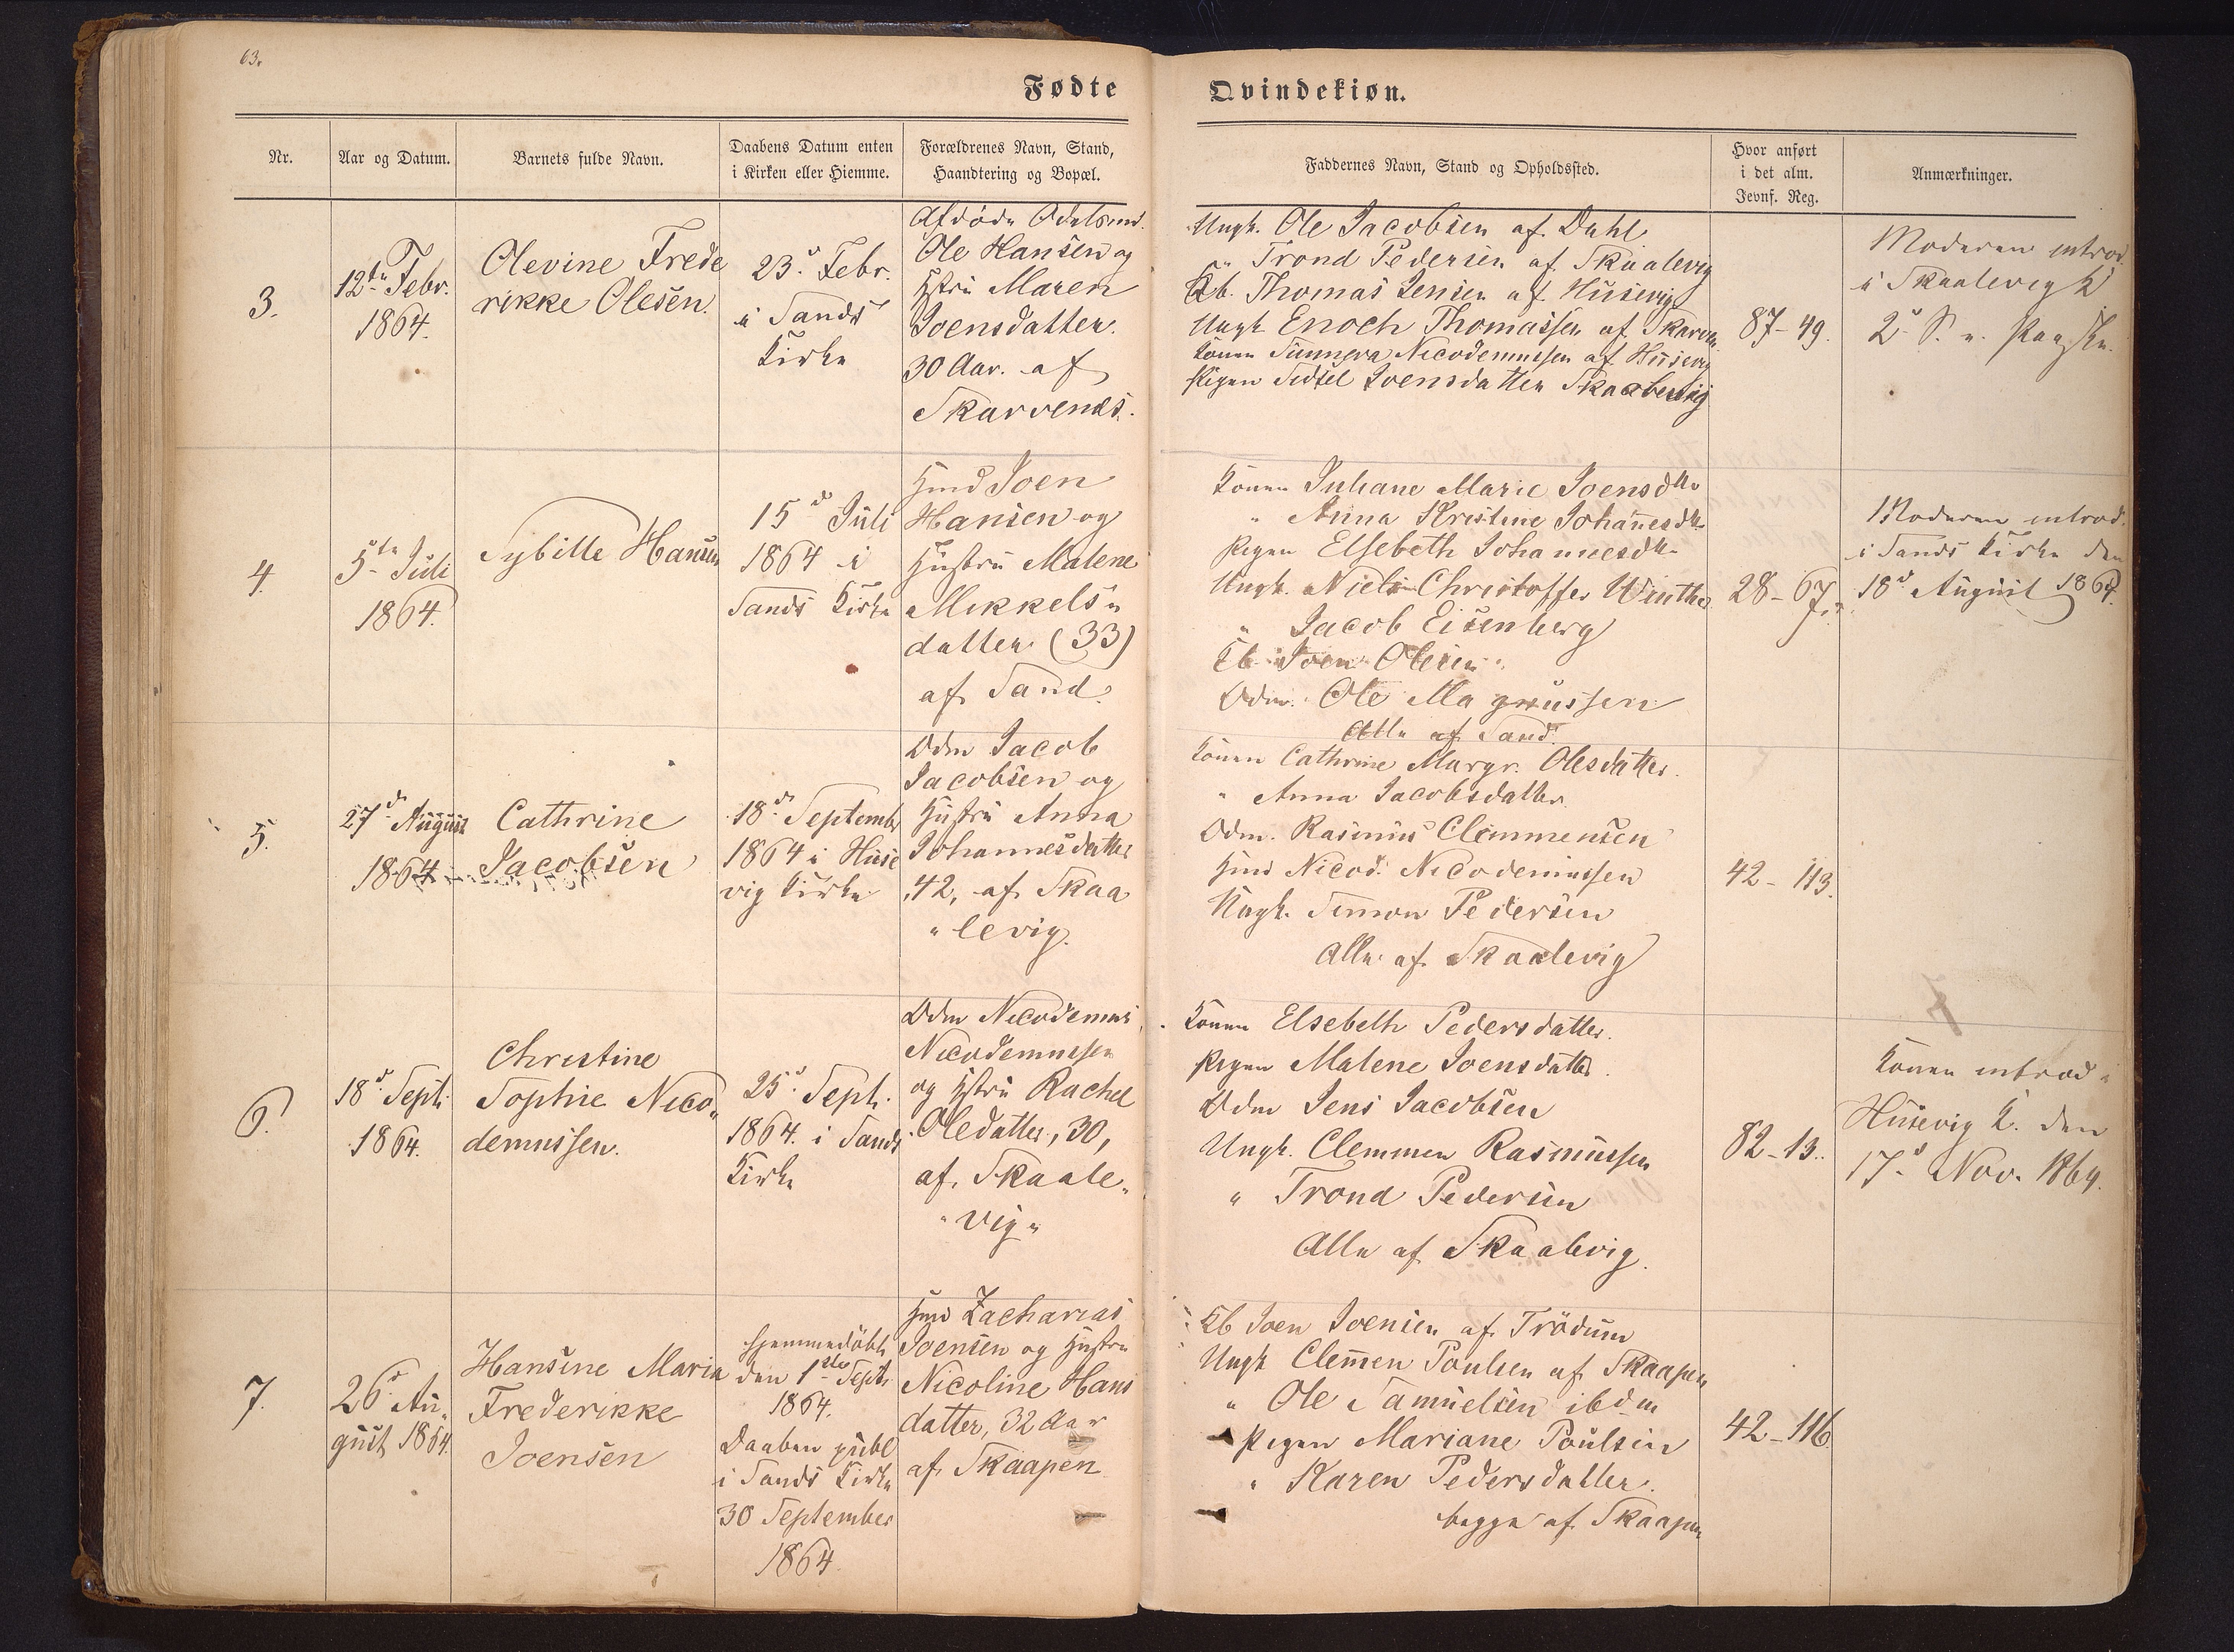 63.
Fødte
Qvindekiøn.
Nr.
Aar og Datum.
Barnets fulde Navn.
Daabens Datum enten
i Kirken eller Hiemme.
Forældrenes Navn, Stand,
Haandtering og Bopæl.
Faddernes Navn, Stand og Opholdssted.
Hvor anført
i det alm.
Jevnf. Reg.
Anmærkninger.
3.
12te Febr.
1864.
Olevine Frede
rikke Olesen.
23d Febr.
i Sands
Kirke
Afdøde Odelsmd.
Ole Hansen og
Hstru Maren
Joensdatter.
30 Aar. af
Skarvenæs.
Ungk. Ole Jacobsen af Dahl
" Trond Pedersen af Skaalevig
Kb. Thomas Jensen af Husevig
Ungk Enoch Thomassen af Skarven
Konen Sunneva Nicodemussen af Husevig
Pigen Sidsel Joensdatter Skaalevig
87-49.
Moderen introd.
i Skaalevig K
2d S. e. Paaske.
4.
5te Juli
1864.
Sybille Hansen
15d Juli
1864 i
Sands Kirke
Hmd Joen
Hansen og
Hustru Malene
Mikkels"
datter (33)
af Sand.
Konen Juliane Marie Joensdtr
" Anna Kristine Johannesdtr
Pigen Elsebeth Johannesdtr
Ungk. Niels Christoffer Winther
" Jacob Eisenberg
Kb Joen Olesen.
Odm. Ole Magnussen
Alle af Sand.
28-67.
Moderen introd.
i Sands Kirke den
18d August 1864.
5.
27d August
1864
Cathrine
Jacobsen
18d Septembr
1864 i Huse
vig Kirke
Odm Jacob
Jacobsen og
Hustru Anna
Johannesdatter
42, af Skaa
" levig.
Konen Cathrine Margr. Olesdatter.
" Anna Jacobsdatter.
Odm. Rasmus Clemmensen
Hmd Nicod. Nicodemussen
Ungk. Simon Pedersen
Alle af Skaalevig
42-113.
6.
18d Sept.
1864.
Christine
Sophie Nico"
demussen.
25d Sept.
1864. i Sands
Kirke
Odm Nicodemus
Nicodemussen
og Hstru Rachel
Oledatter, 30,
af Skaale"
" vig "
Konen Elsebeth Pedersdatter.
Pigen Malene Joensdatter.
Odm Jens Jacobsen
Ungk. Clemmen Rasmussen
" Trond Pedersen
Alle af Skaalevig.
82-13.
Konen introd i
Husevig K. den
17d Nov. 1864.
7.
26d Au"
gust 1864.
Hansine Marie
Frederikke
Joensen
Hjemmedøbt
den 1ste Sept.
1864.
Daaben publ
i Sands Kirke
30 September
1864
Hmd Zacharias
Joensen og Hustru
Nicoline Hans
datter, 32 Aar
af Skaapen
Kb Joen Joensen af Trödum
Ungk Clemen Poulsen af Skaapen
" Ole Samuelsen ibdm
Pigen Mariane Poulsen
" Karen Pedersdatter.
begge af Skaapen
42-116